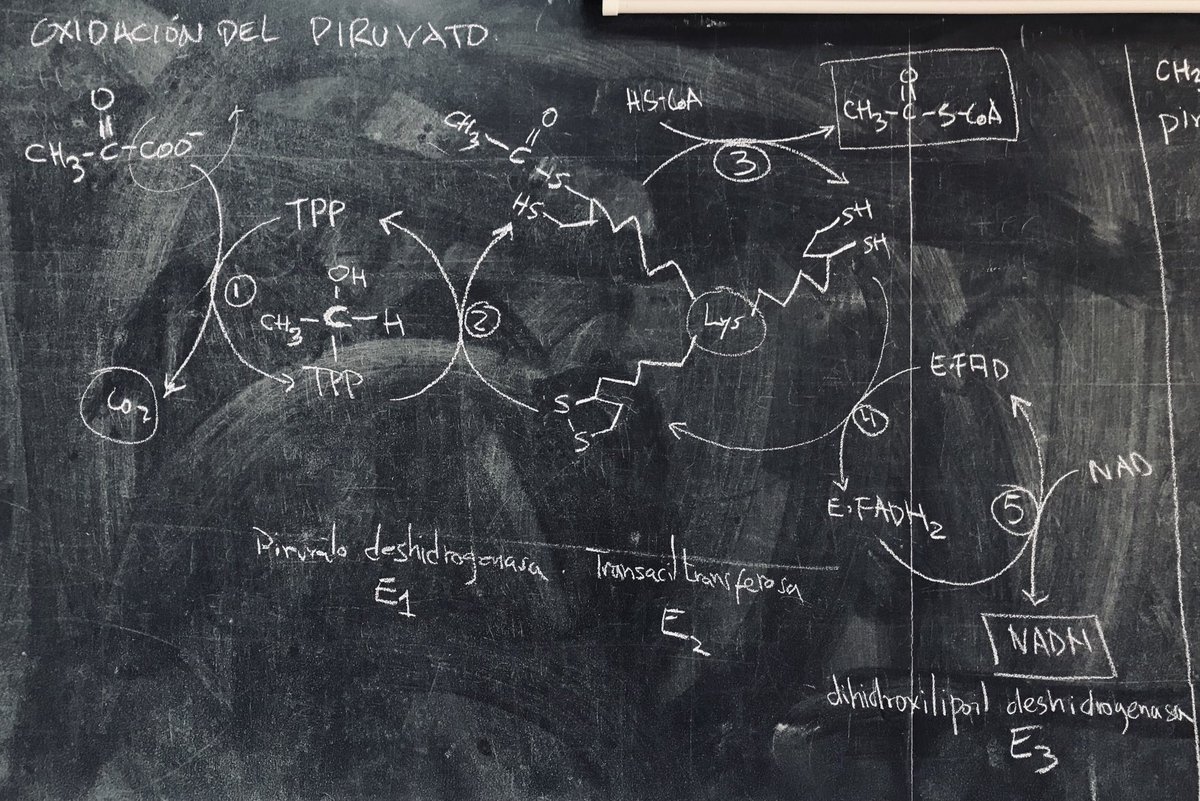 OXIDACIÓN DEL PIRUVATO.
O
CH₃-C-COO⁻
TPP
①
OH
CH₃-C-H
TPP
CO₂
②
CH₃
C
O
S
HS
HS-CoA
③
O
CH₃-C-S-CoA
SH
SH
Lys
S
S
E.FAD
④
E.FADH₂
NAD
⑤
NADH
CH₂
pir
Piruvato deshidrogenasa.
E₁
Transaciltransferasa
E₂
dihidroxilipoil deshidrogenasa
E₃